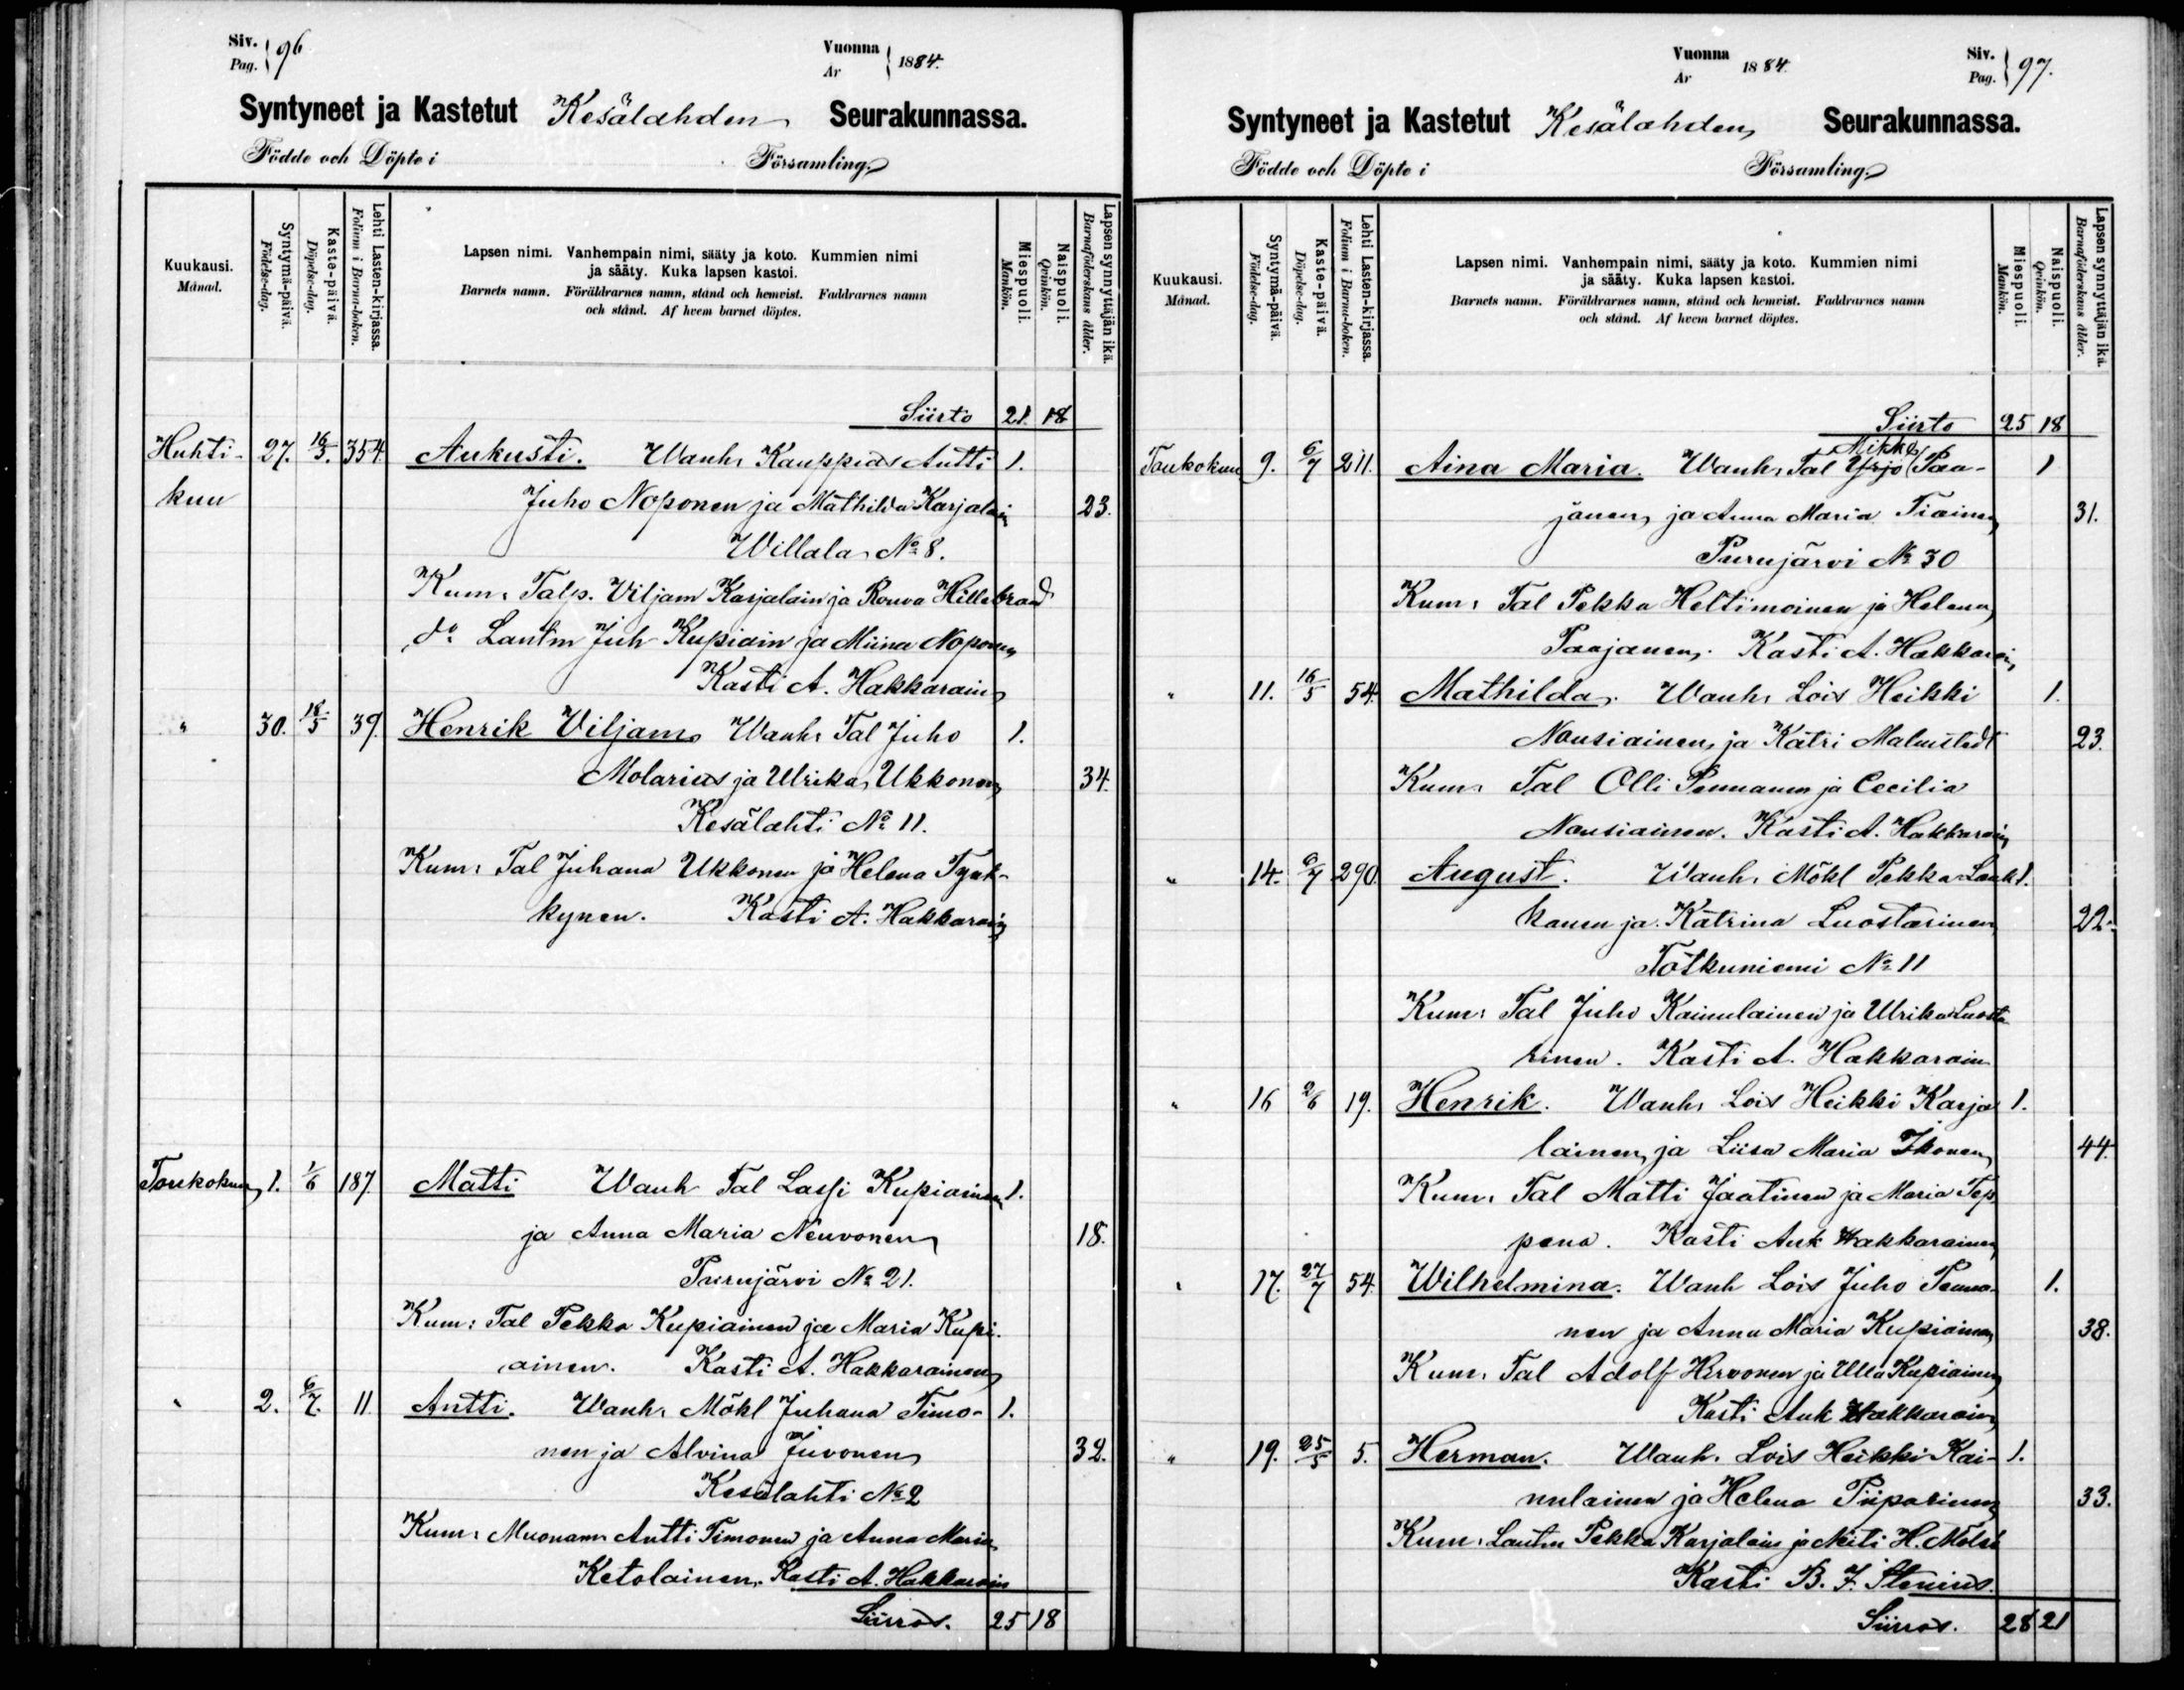 Siv. Pag. } 96
Vuonna Ar } 1884.
Syntyneet ja Kastetut Kesälahden Seurakunnassa.
Födde och Döpte i Församling.
Kuukausi. Månad.
Syntymä-päivä. Födelse-dag.
Kaste-päivä. Döpelse-dag.
Lehti Lasten-kirjassa. Folium i Barna-boken.
Lapsen nimi. Vanhempain nimi, sääty ja koto. Kummien nimi
ja sääty. Kuka lapsen kastoi.
Barnets namn. Föräldrarnes namn, stånd och hemvist. Faddrarnes namn
och stånd. Af hvem barnet döptes.
Miespuoli. Mankön.
Naispuoli. Qvinkön.
Lapsen synnyttäjän ikä. Barnaföderskans ålder.
Siirto 21. 18
Huhti- 27. 16/5. 354. Aukusti. Wanh: Kauppias Antti 1.
kuu Juho Noponen ja Mathilda Karjalain 23.
Willala No 8.
Kum: Talp. Viljam Karjalain ja Rouva Hillebrand
do Lautm Juh Kupiain ja Miina Noponen
Kasti A. Hakkarain
" 30. 18/5 39. Henrik Viljam Wanh: Tal Juho 1.
Molarius ja Ulrika Ukkonen 34.
Kesälahti No 11.
Kum: Tal Juhana Ukkonen ja Helena Tynk-
kynen. Kasti A. Hakkarain
Toukokuu 1. 1/6 187. Matti Wanh Tal Lassi Kupiainen 1.
ja Anna Maria Neuvonen 18.
Purujärvi No 21.
Kum: Tal Pekka Kupiainen ja Maria Kupi-
ainen. Kasti A. Hakkarainen
" 2. 6/7. 11. Antti. Wanh: Mökl Juhana Timo- 1.
nen ja Alvina Juvonen 32.
Kesälahti No 2
Kum: Muonam Antti Timonen ja Anna Maria
Ketolainen. Kasti A. Hakkarain
Siirros. 25 18
Vuonna Ar 1884.
Siv. Pag. } 97.
Syntyneet ja Kastetut Kesälahden Seurakunnassa.
Födde och Döpte i Församling.
Kuukausi. Månad.
Syntymä-päivä. Födelse-dag.
Kaste-päivä. Döpelse-dag.
Lehti Lasten-kirjassa. Folium i Barna-boken.
Lapsen nimi. Vanhempain nimi, sääty ja koto. Kummien nimi
ja sääty. Kuka lapsen kastoi.
Barnets namn. Föräldrarnes namn, stånd och hemvist. Faddrarnes namn
och stånd. Af hvem barnet döptes.
Miespuoli. Mankön.
Naispuoli. Qvinkön.
Lapsen synnyttäjän ikä. Barnaföderskans ålder.
Siirto 25 18
Mikko
Toukokuu 9. 6/7 211. Aina Maria. Wanh: Tal Yrjö Paa- 1
janen ja Anna Maria Tiainen 31.
Purujärvi No 30
Kum: Tal Pekka Heltimoinen ja Helena
Paajanen. Kasti A. Hakkarain
" 11. 16/5 54. Mathilda. Wanh: Lois Heikki 1.
Nousiainen ja Katri Malmstedt 23.
Kum: Tal Olli Pennanen ja Cecilia
Nousiainen. Kasti A. Hakkarain
" 14. 6/7 290. August. Wanh: Mökl Pekka Lauk 1.
kanen ja Katrina Luostarinen 22.
Totkuniemi No 11
Kum: Tal Juho Kainulainen ja Ulrika Luosta
rinen. Kasti A. Hakkarain
" 16 2/6 19. Henrik. Wanh: Lois Heikki Karja 1.
lainen ja Liisa Maria Ikonen 44.
Kum: Tal Matti Jaatinen ja Maria Tep
pana. Kasti Auk Hakkarainen
" 17. 27/7 54. Wilhelmina. Wanh Lois Juho Penna- 1.
nen ja Anna Maria Kupiainen 38.
Kum: Tal Adolf Hirvonen ja Ulla Kupiainen
Kasti Auk Hakkarain
" 19. 25/5 5. Herman. Wanh. Lois Heikki Kai- 1.
nulainen ja Helena Piiparinen 33.
Kum: Lautm Pekka Karjalain ja Neiti H. Mölsä
Kasti B. F. Stenius.
Siirros. 28 21